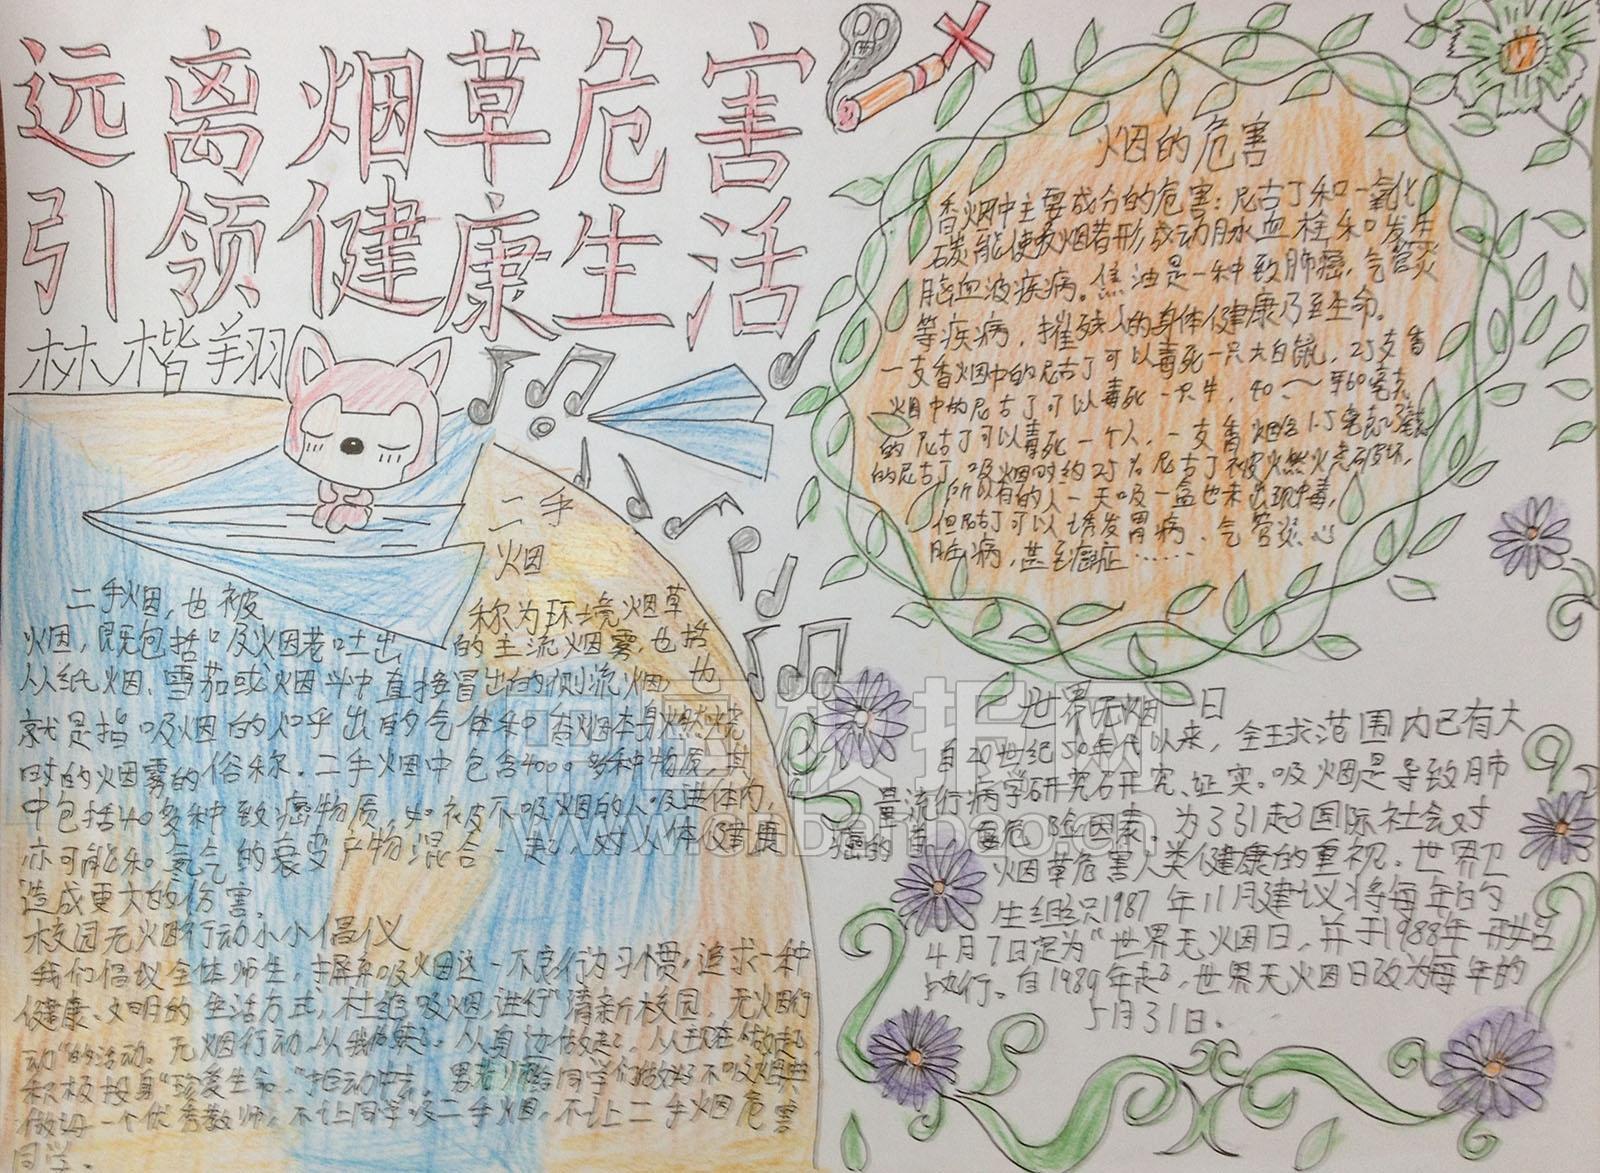 远离烟草危害
引领健康生活
林楷翔
烟的危害
香烟中主要成分的危害:尼古丁和一氧化
碳能使吸烟者形成动脉血栓和发生
脑血液疾病。焦油是一种致肺癌,气管炎
等疾病,摧残人的身体健康乃至生命。
一支香烟中的尼古丁可以毒死一只大白鼠,25支香
烟中的尼古丁可以毒死一只牛,40~60毫克
的尼古丁可以毒死一个人,一支香烟含1.5毫克
的尼古丁,吸烟时约25%尼古丁被火燃火烧破坏,
所以有的人一天吸一盒也未出现中毒,
但尼古丁可以诱发胃病、气管炎、心
脏病,甚至癌症……
二手
烟
二手烟,也被称为环境烟草
烟,既包括吸烟者吐出的主流烟雾,也括
从纸烟、雪茄或烟斗中直接冒出的侧流烟,也
就是指吸烟的人呼出的气体和香烟本身燃烧
时的烟雾的俗称。二手烟中包含4000多种物质,其
中包括40多种致癌物质,如被不吸烟的人吸进体内,
亦可能和氡气的衰变产物混合一起,对人体健康
造成更大的伤害。
校园无烟行动小小倡议
我们倡议全体师生,摒弃吸烟这一不良行为习惯,追求一种
健康、文明的生活方式,杜绝吸烟,进行"清新校园,无烟行
动"的活动。无烟行动,从我做起,从身边做起,从现在做起,
积极投身"珍爱生命"行动中去。男老师给同学们做好不吸烟
做一个优秀教师,不让同学吸二手烟,不让二手烟危害
同学。
世界无烟日
自20世纪50年代以来,全球范围内已有大
量流行病学研究证实。吸烟是导致肺
癌的首要危险因素。为了引起国际社会对
烟草危害人类健康的重视,世界卫
生组织1987年11月建议将每年的
4月7日定为"世界无烟日,并于1988年开始
执行。自1989年起,世界无烟日改为每年的
5月31日。
中国板报网
www.cnbanbao.cn